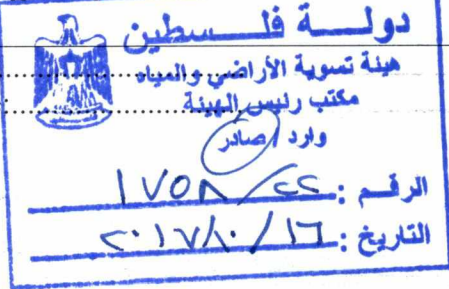 دولة فلسطين
هيئة تسوية الأراضي والمياه
مكتب رئيس الهيئة
وارد / صادر
الرقم : ١٧٥٨/٢٢
التاريخ : ٢٠١٧/١٠/١٦